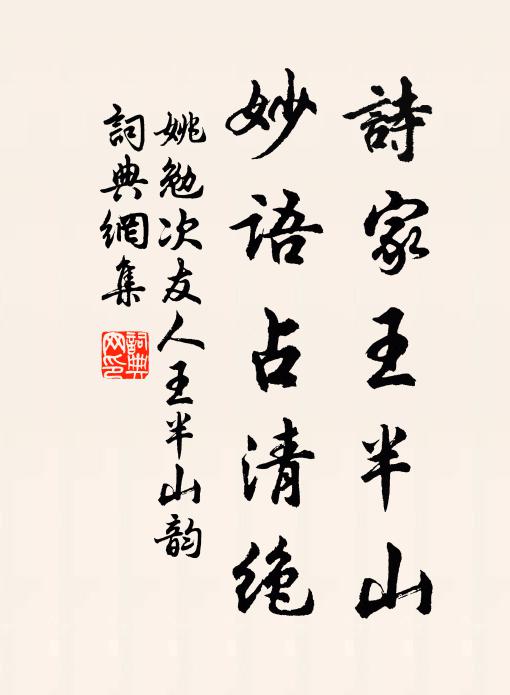 詩家王半山
妙語占清絶
姚勉次友人王半山韵
詞典網集
詞典網印